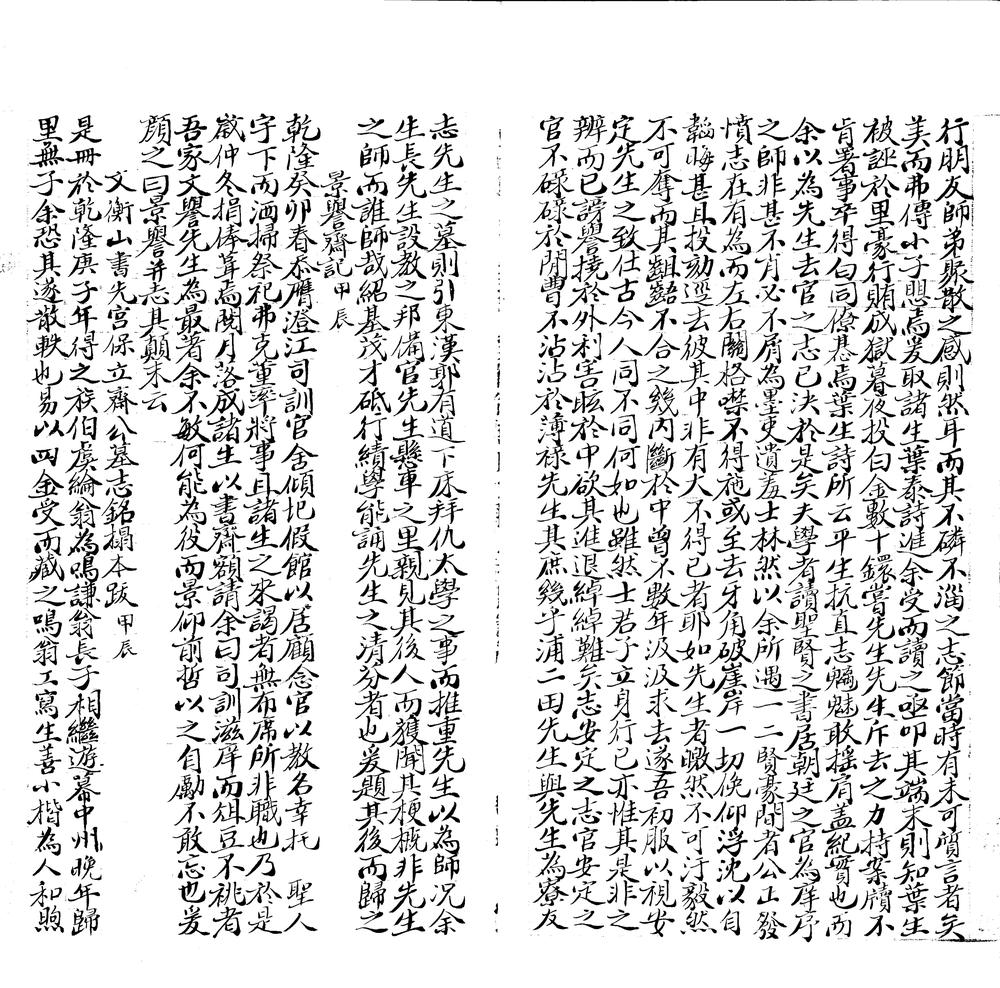 行朋友師弟聚散之感則然耳而其不磷不淄之志節當時有未可質言者矣
美而弗傳小子愳焉爰取諸生葉泰詩淮余受而讀之亟叩其端末則知葉生
被誣於里豪行賄成獄暮夜投白金數十鐶嘗先生先生斥去之力持案牘不
肯署事卒得白同僚惎焉葉生詩所云平生抗直志魑魅敢搖肩盖紀實也而
余以為先生去官之志已決於是矣夫學者讀聖賢之書居朝廷之官為庠序
之師非甚不肖必不屑為墨吏遺羞士林然以余所遇一二賢豪間者公正發
憤志在有為而左右關格噤不得施或至去牙角破崖岸一切俛仰浮沈以自
韜晦甚且投劾逕去彼其中非有大不得已者耶如先生者皦然不可汙毅然
不可奪而其齟齬不合之幾內斷於中曾不數年汲汲求去遂吾初服以視安
定先生之致仕古今人同不同何如也雖然士君子立身行已亦惟其是非之
辨而已謗譽撓於外利害眩於中欲其進退綽綽難矣志安定之志官安定之
官不碌碌於閒曹不沾沾於薄祿先生其庶幾乎浦二田先生與先生為寮友
志先生之墓則引東漢郭有道下床拜仇太學之事而推重先生以為師況余
生長先生設教之邦備官先生懸車之里親見其後人而獲聞其梗概非先生
之師而誰師哉紹基茂才砥行績學能誦先生之清分者也爰題其後而歸之
景譽齋記甲辰
乾隆癸卯春忝膺澄江司訓官舍傾圮假館以居顧念官以教名幸托 聖人
宇下而洒掃祭祀弗克董率將事且諸生之來謁者無布席所非職也乃於是
歲仲冬捐俸葺焉閱月落成諸生以書齋額請余曰司訓滋庠而俎豆不祧者
吾家文譽先生為最著余不敏何能為役而景仰前哲以之自勵不敢忘也爰
顏之曰景譽并志其顛末云
文衡山書先宮保立齋公墓志銘搨本跋甲辰
是冊於乾隆庚子年得之族伯虞綸翁為鳴謙翁長子相繼遊幕中州晚年歸
里無子余恐其遂散軼也易以四金受而藏之鳴翁工寫生善小楷為人和煦